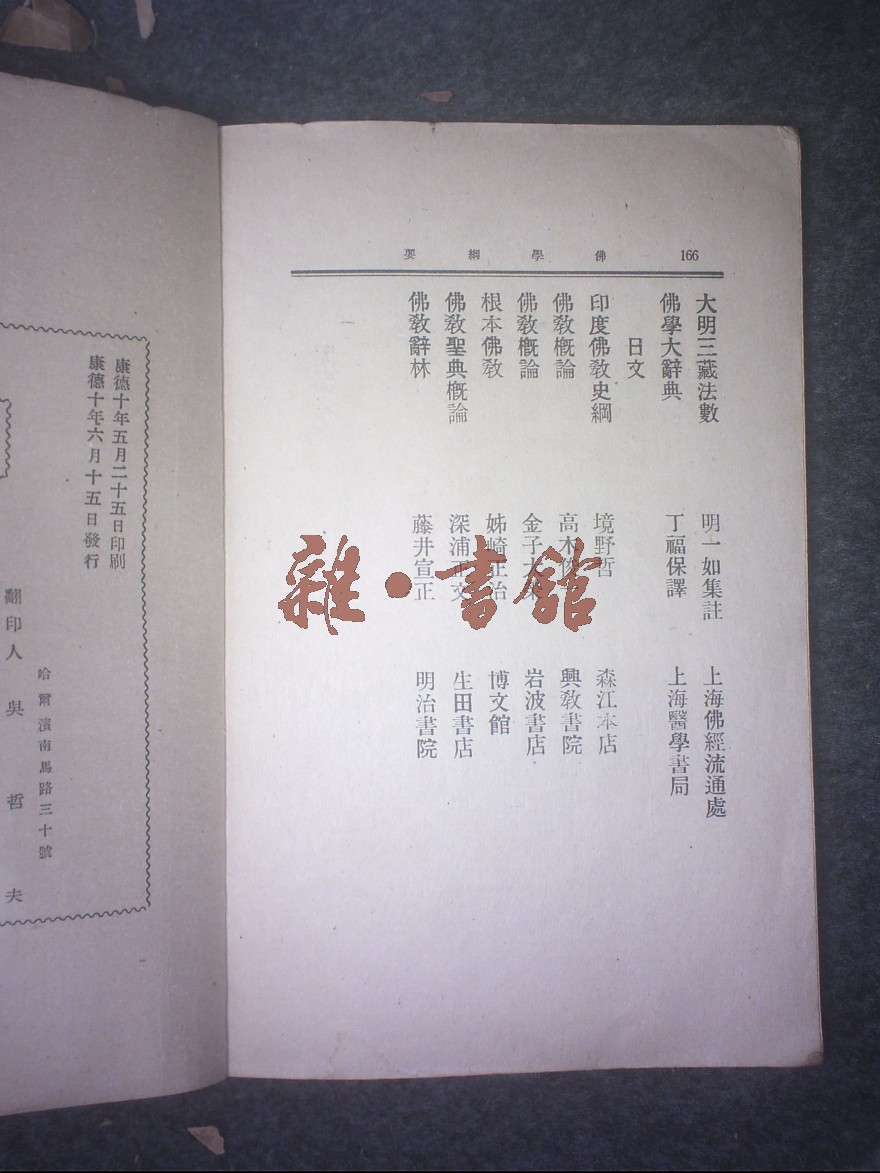 166 佛學綱要
大明三藏法數 明一如集註 上海佛經流通處
佛學大辭典 丁福保譯 上海醫學書局
日文
印度佛教史綱 境野哲 森江本店
佛教概論 高木俊 興教書院
佛教概論 金子大榮 岩波書店
根本佛教 姊崎正治 博文館
佛教聖典概論 深浦正文 生田書店
佛教辭林 藤井宣正 明治書院
康德十年五月二十五日印刷
康德十年六月十五日發行
哈爾濱南馬路三十號
翻印人 吳哲夫
雜·書館